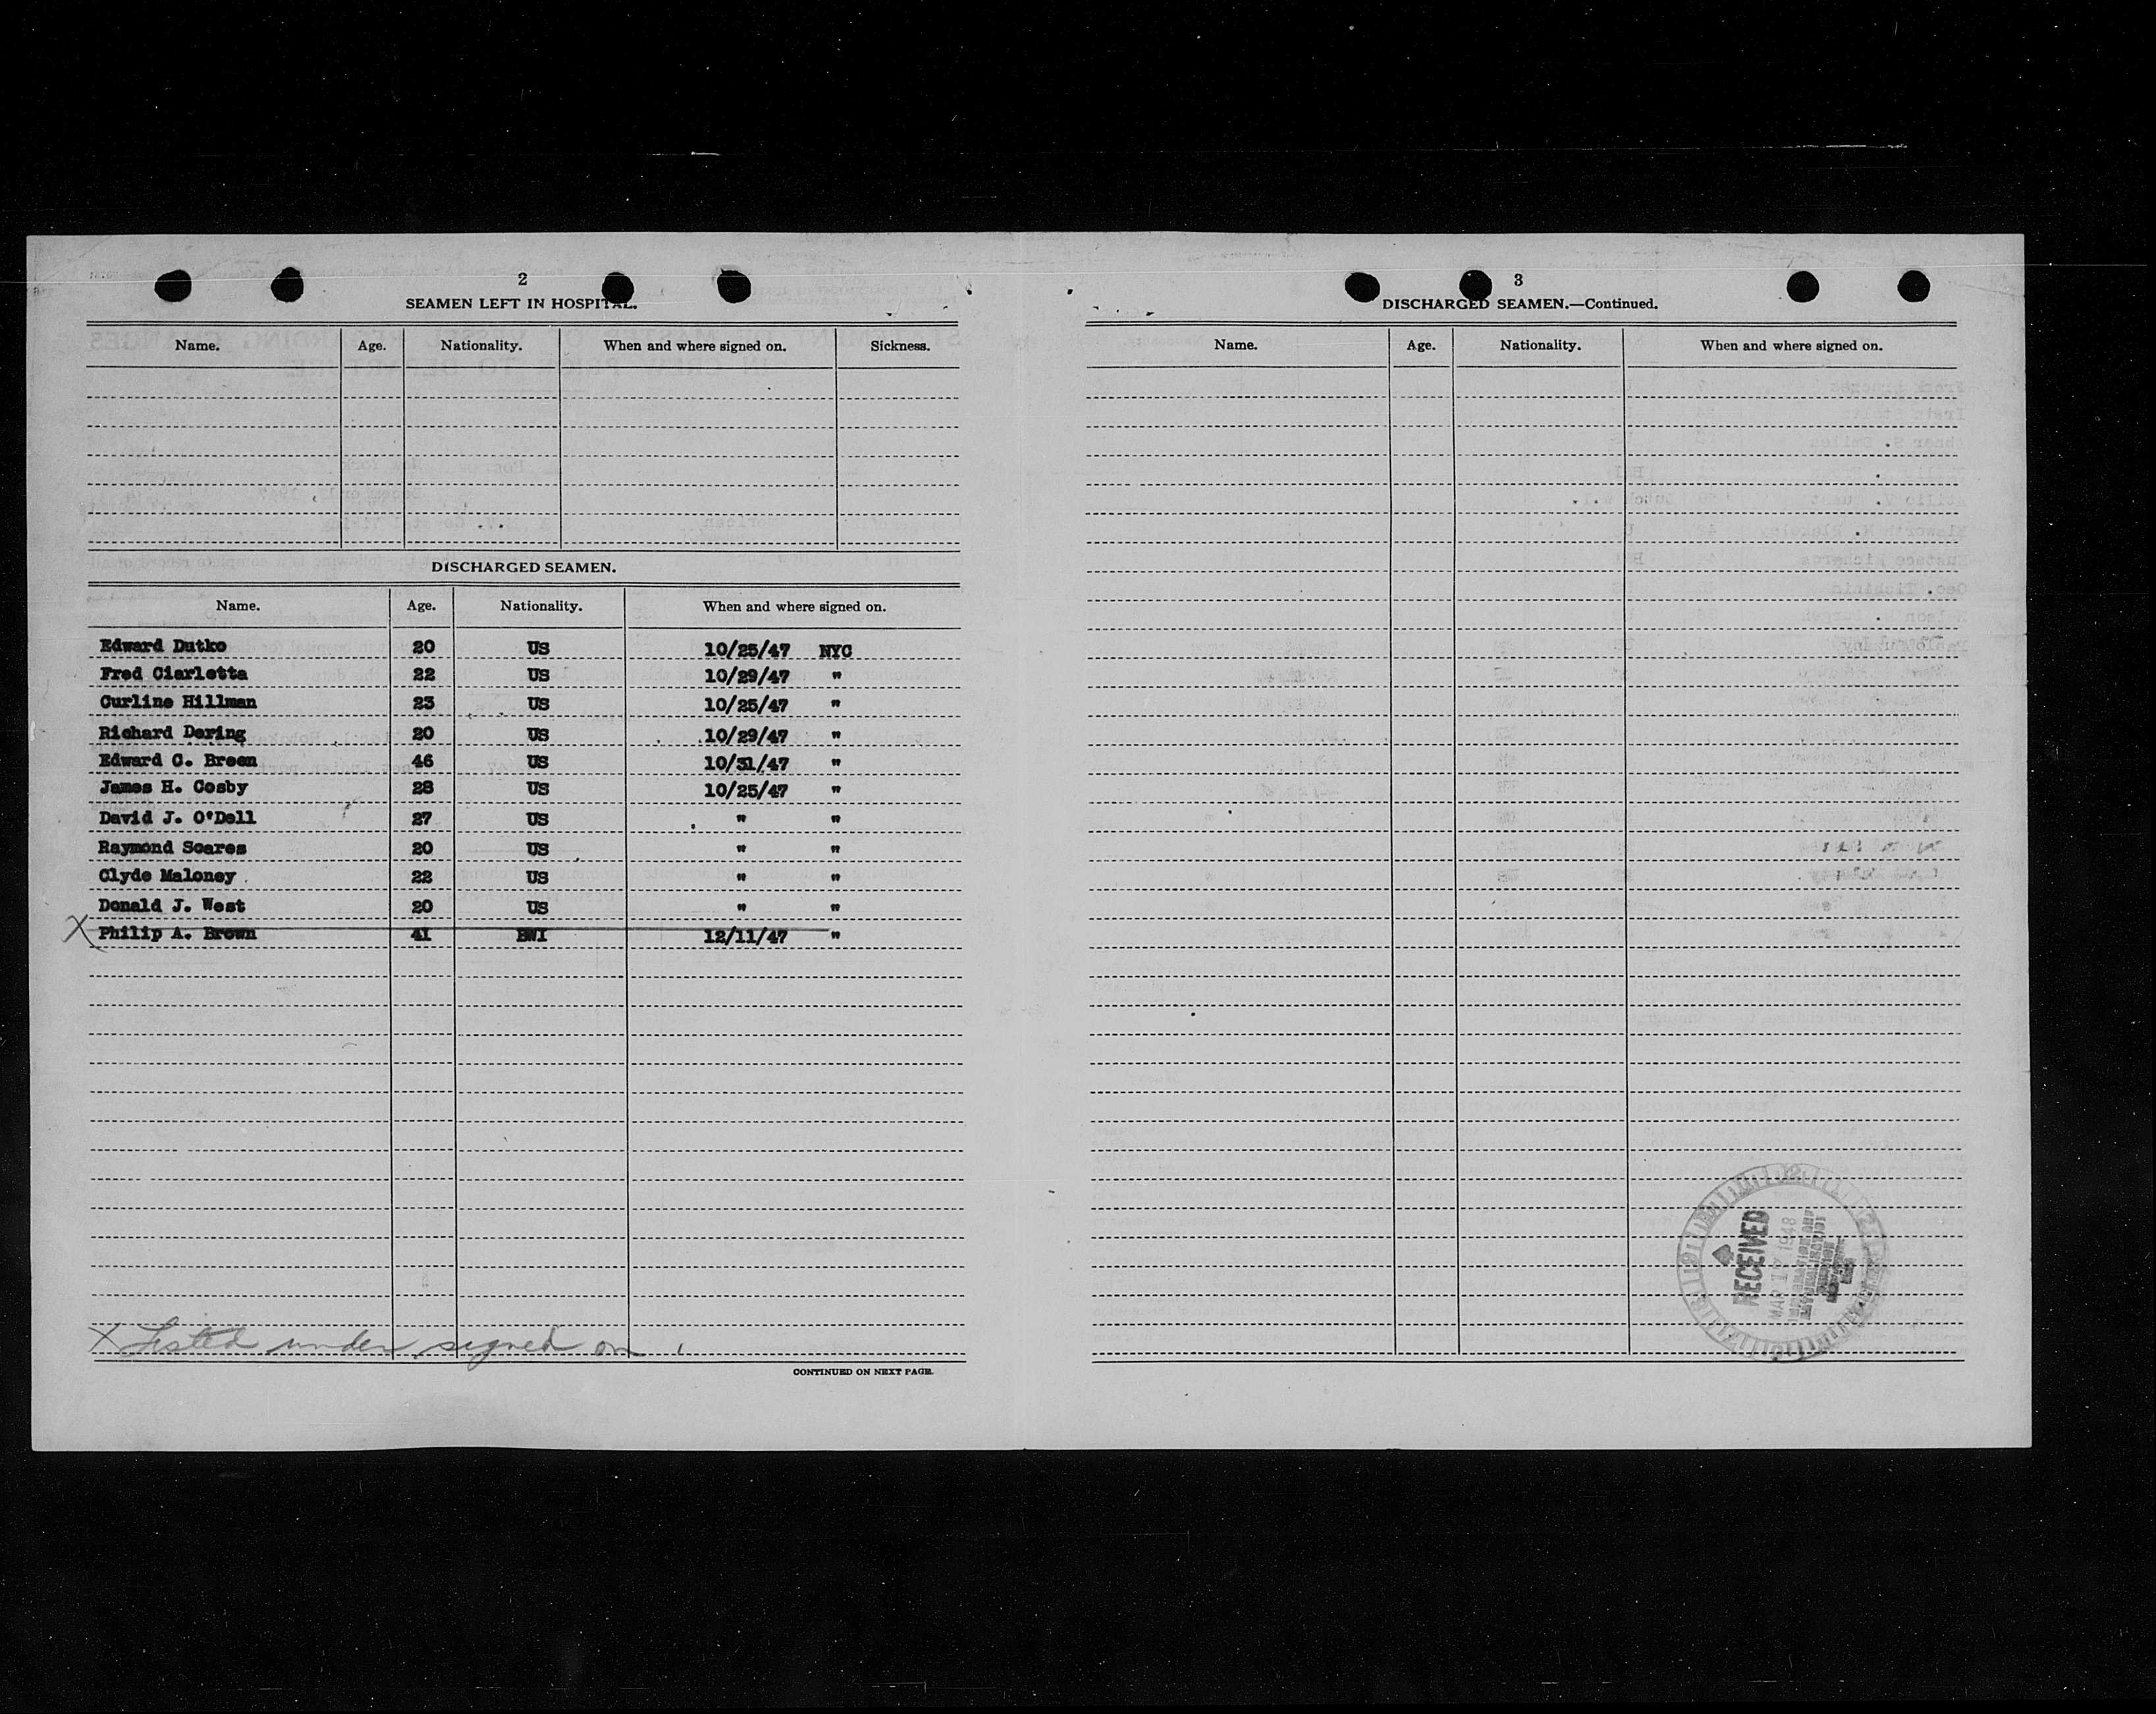 2
SEAMEN LEFT IN HOSPITAL.
Name. Age. Nationality. When and where signed on. Sickness.
DISCHARGED SEAMEN.
Name. Age. Nationality. When and where signed on.
Edward Dutko 20 US 10/25/47 NYC
Fred Ciarletta 22 US 10/29/47 "
Curline Hillman 23 US 10/25/47 "
Richard Dering 20 US 10/29/47 "
Edward C. Breen 46 US 10/31/47 "
James H. Cosby 28 US 10/25/47 "
David J. O'Dell 27 US " "
Raymond Soares 20 US " "
Clyde Maloney 22 US " "
Donald J. West 20 US " "
X Philip A. Brown 41 BWI 12/11/47 "
X Listed under signed on
CONTINUED ON NEXT PAGE.
3
DISCHARGED SEAMEN.—Continued.
Name. Age. Nationality. When and where signed on.
RECEIVED
MAR 17 1948